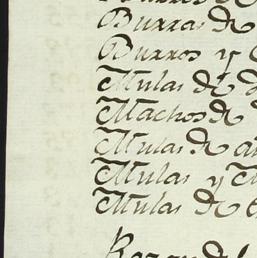 Burras de
Burros y
Mulas de
Machos de
Mulas de
Mulas y
Mulas de